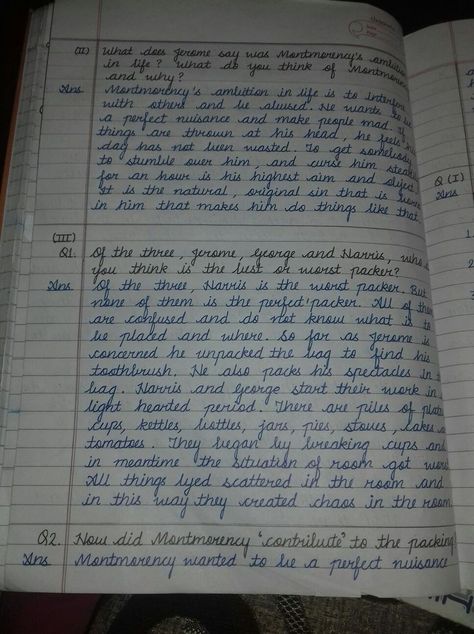 (II) What does Jerome say was Montmorency's ambition
in life? What do you think of Montmorency
and why?
Ans Montmorency's ambition in life is to interfere
with others and be abused. He wants to be
a perfect nuisance and make people mad. If
things are thrown at his head, he feels his
day has not been wasted. To get somebody
to stumble over him, and curse him steadily
for an hour is his highest aim and object.
It is the natural, original sin that is born
in him that makes him do things like that
(III)
Q1. Of the three, Jerome, George and Harris, who do
you think is the best or worst packer?
Ans Of the three, Harris is the worst packer. But
none of them is the perfect packer. All of them
are confused and do not know what is to
be placed and where. So far as Jerome is
concerned he unpacked the bag to find his
toothbrush. He also packs his spectacles in the
bag. Harris and George start their work in
light hearted period. There are piles of plates
cups, kettles, bottles, jars, pies, stoves, cakes and
tomatoes. They began by breaking cups and
in meantime the situation of room got worse
All things lyed scattered in the room and
in this way they created chaos in the room
Q2. How did Montmorency "contribute" to the packing
Ans Montmorency wanted to be a perfect nuisance
Q (I)
Ans
1.